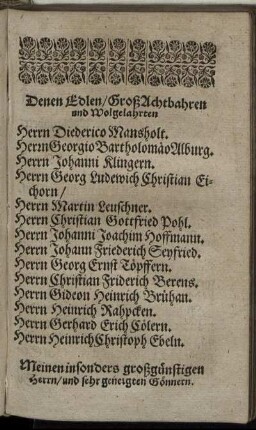 Denen Edlen/GroßAchtbahren
und Wolgelahrten
Herrn Diederico Mansholt.
Herrn Georgio Bartholomäo Alburg.
Herrn Johanni Klingern.
Herrn Georg Ludewich Christian Ei-
chorn/
Herrn Martin Leuschner.
Herrn Christian Gottfried Pohl.
Herrn Johanni Joachim Hoffmann.
Herrn Johann Friederich Seyfried.
Herrn Georg Ernst Töpffern.
Herrn Christian Friderich Berens.
Herrn Gideon Heinrich Brühan.
Herrn Heinrich Rahpcken.
Herrn Gerhard Erich Cölern.
Herrn Heinrich Christoph Ebeln.
Meinen insonders großgünstigen
Herrn/und sehr geneigten Gönnern.